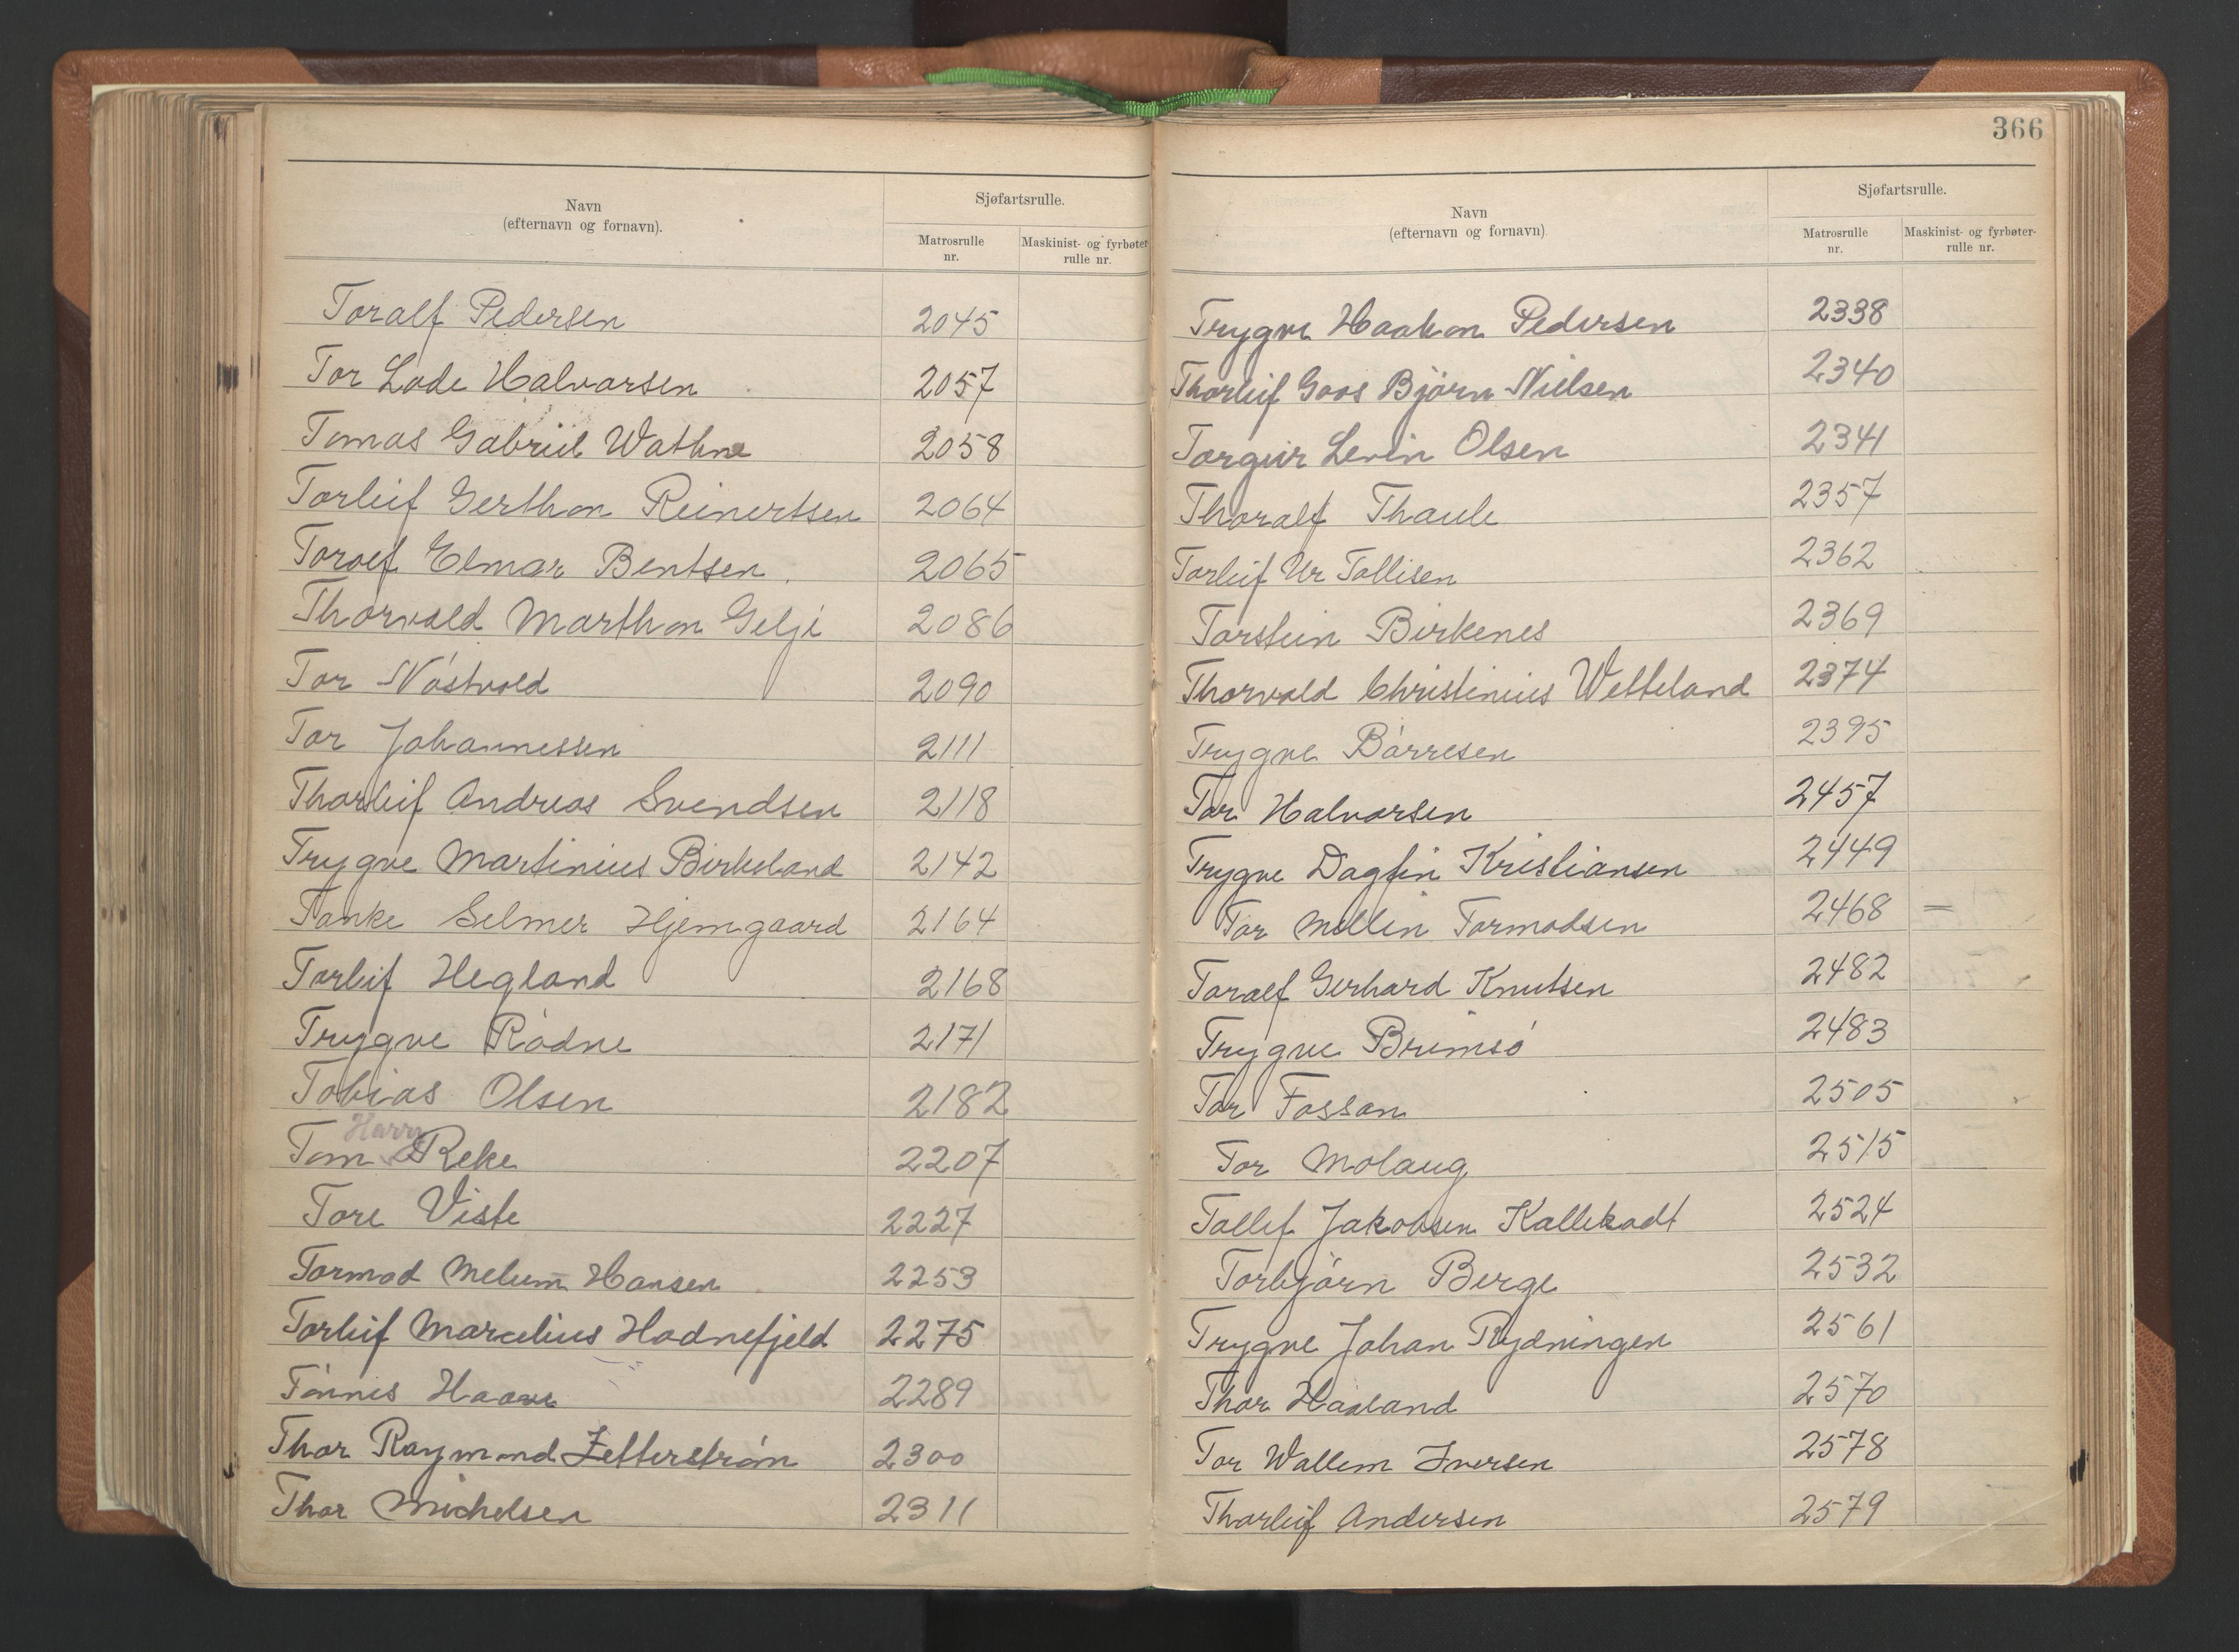 Navn
(efternavn og fornavn).
Sjøfartsrulle.
Matrosrulle nr.
Maskinist- og fyrbøter rulle nr.
Toralf Pedersen 2045
Tor Lode Halvorsen 2057
Tomas Gabriel Wathne 2058
Torleif Gerthon Reinertsen 2064
Torolf Elmar Bentsen. 2065
Thorvald Marthon Gelje 2086
Tor Nöstvold 2090
Tor Johannessen 2111
Thorleif Andreas Svendsen 2118
Trygve Martinius Birkeland 2142
Tanke Selmer Hjemgaard 2164
Torleif Hegland 2168
Trygve Rödne 2171
Tobias Olsen 2182
Harry
Tom Reke 2207
Tore Viste 2227
Tormod Melum Hansen 2253
Torleif Marcelius Hodnefjeld 2275
Tönnes Haave 2289
Thor Raymond Zetterström 2300
Thor Michelsen 2311
366
Navn
(efternavn og fornavn)
Sjøfartsrulle.
Matrosrulle nr.
Maskinist- og fyrbøter- rulle nr.
Trygve Haakon Pedersen 2338
Thorleif Goos Björn Nielsen 2340
Torgeir Levin Olsen 2341
Thoralf Thaule 2357
Torleif Ur Tollisen 2362
Torstein Birkenes 2369
Thorvald Christinius Wetteland 2374
Trygve Börresen 2395
Tor Halvorsen 2457
Trygve Dagfin Kristiansen 2449
Tor Mellin Tormodsen 2468 =
Toralf Gerhard Knutsen 2482
Trygve Brimsö 2483
Tor Fosson 2505
Tor Molaug 2515
Tollef Jakobsen Kallekodt 2524
Torbjörn Berge 2532
Trygve Johan Rydningen 2561
Thor Haaland 2570
Tor Wallem Iversen 2578
Thorleif Andersen 2579